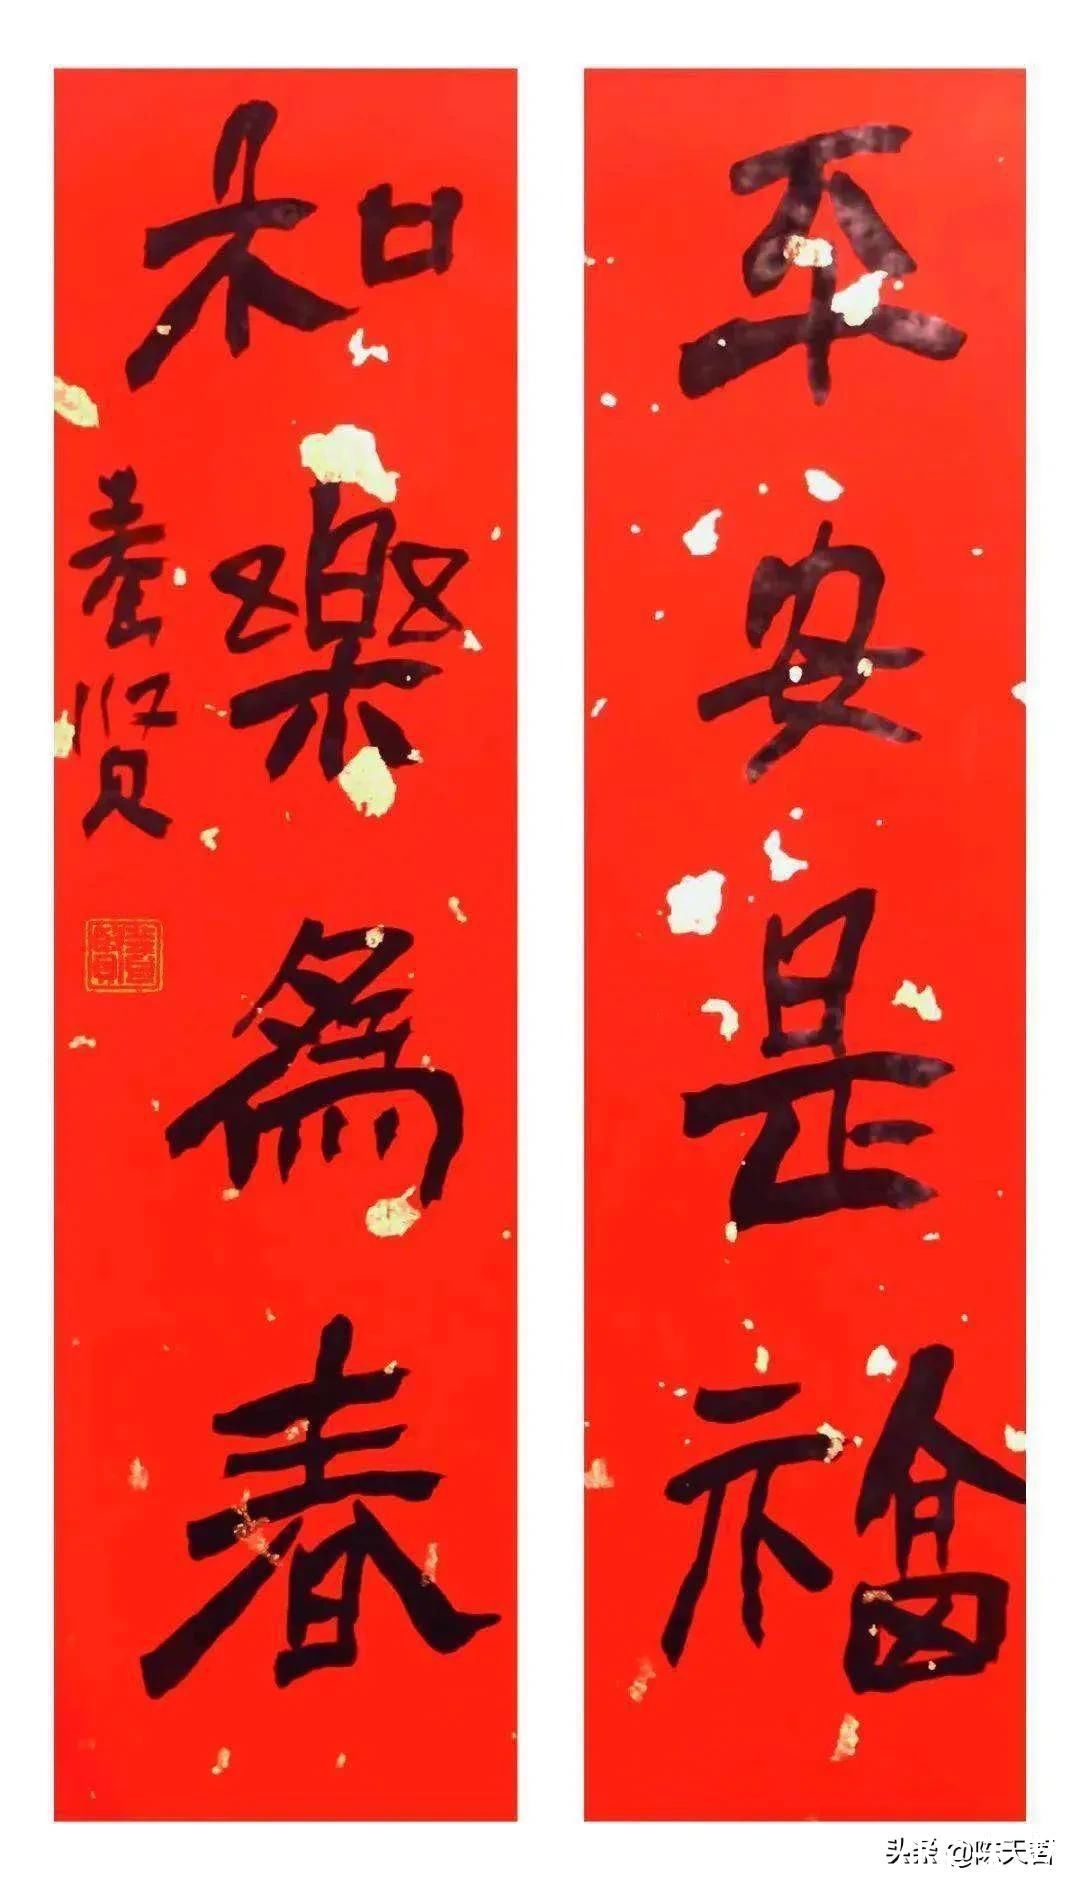 平安是福
和樂為春
春贤
头条 @陈天哲